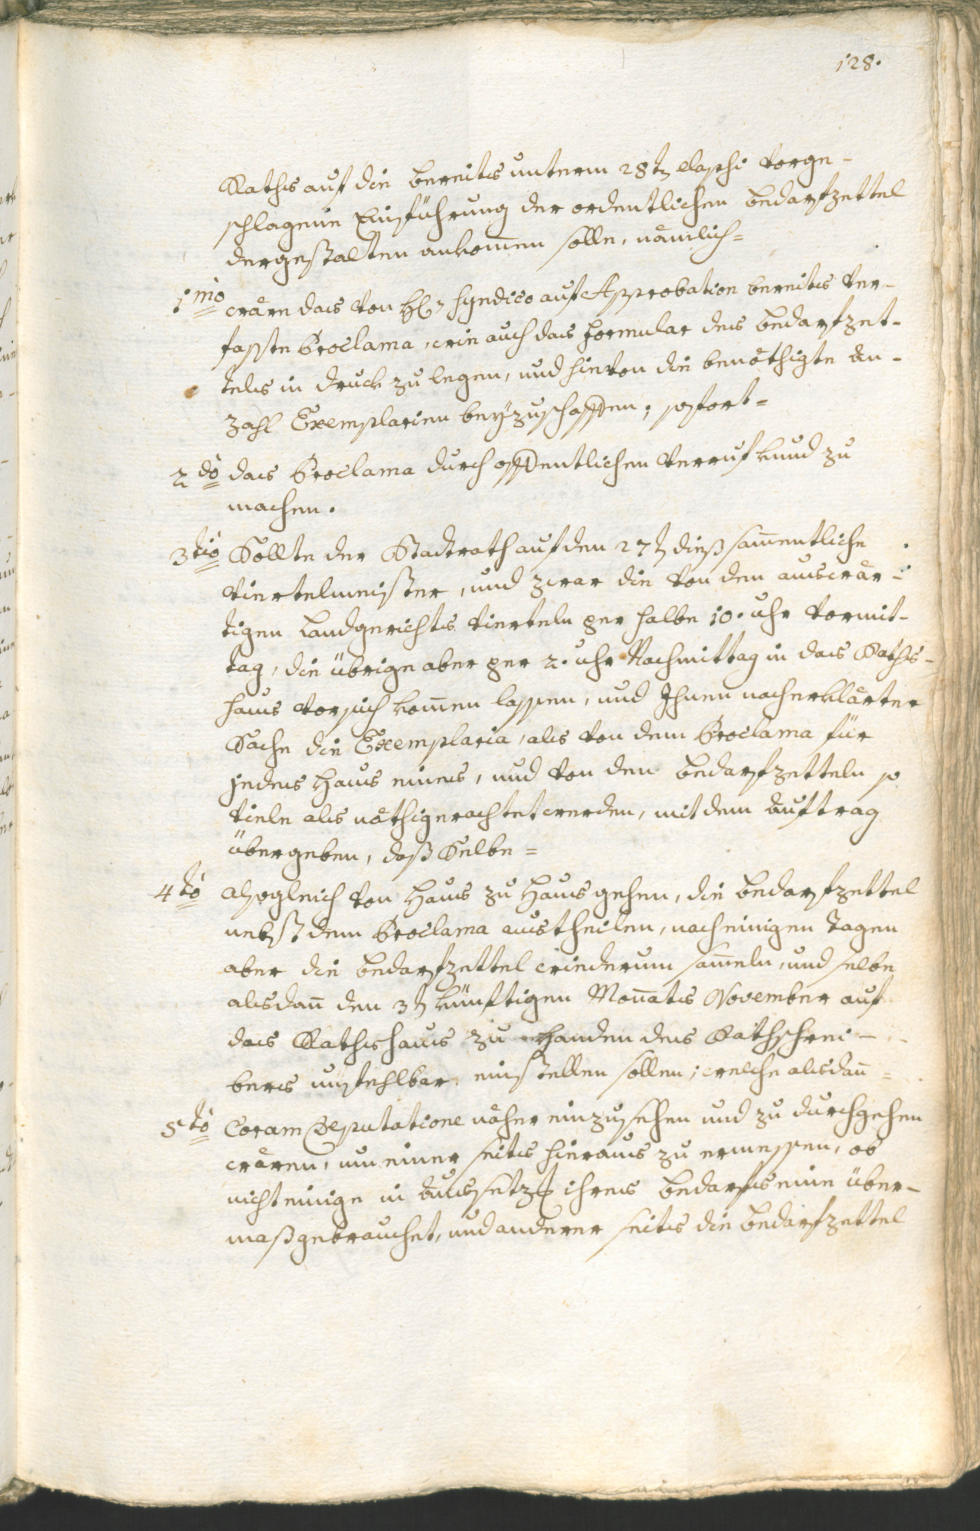 128.
Raths auf die bereits unterm 28t elapsi vorge-
schlagene Einführung der ordentlichen bedarfzettel
dergestalten ankommen solle, nämlich=
1mo wäre das von H: Syndico auf Approbation bereits ver-
faßte Proclama, wie auch das Formular des bedarfzet-
tels in druck zu legen, und hievon die benöthigte An-
zahl Exemplarien beyzuschaffen; sofort=
2do das Proclama durch offentlichen Verruf kund zu
machen.
3tio Sollte der Stadtrath auf den 27t dieß sammentliche
Viertelmeister, und zwar die von den auswär-
tigen Landgerichts Vierteln per halbe 10. uhr Vormit-
tag, die übrige aber per 2. uhr Nachmittag in das Raths-
haus vor sich kommen lassen, und Ihnen nach erklärter
Sache die Exemplaria, als von dem Proclama für
jedes Haus eines, und von den bedarfzetteln so
viele als nöthig erachtet werden, mit dem Auftrag
übergeben, daß Selbe=
4to alsogleich von Haus zu Haus gehen, die bedarfzettel
nebst dem Proclama austheilen, nach einigen tagen
aber die bedarfzettel wiederum sammeln, und selbe
alsdann den 3t künftigen Monnats November auf
das Rathshaus zu Handen des Rathschrei-
bers unfehlbar einstellen sollen; welche alsdann=
5to Coram Deputatione näher einzusehen und zu durchgehen
wären, um einer seits hieraus zu ermessen, ob
nicht einige in Aussetz ihres bedarfs eine über-
maß gebrauchet, und anderer seits die bedarfzettel